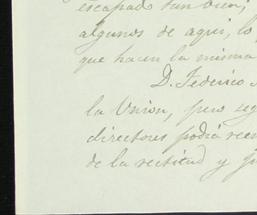 escapado tan bien;
algunos de aquí, lo
que hacen la misma
D. Federico
la Union, pero seg
directores podrá reem
de la rectitud y